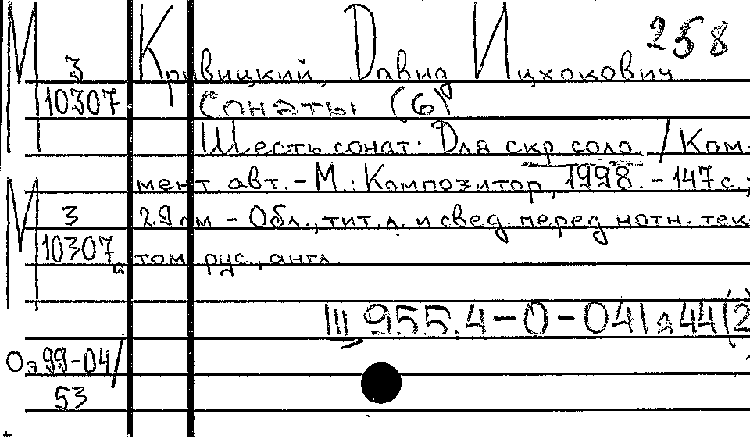 258
М 3 Кривицкий, Давид Ицхокович
10307 Сонаты (6)
Шесть сонат: Для скр. соло. / Ком-
мент. авт. - М.: Композитор, 1998. - 147 с.;
М 3 29 см - Обл., тит. л. и свед. перед нотн. текс-
10307 том рус., англ.
III 955.4-0-041я44(2
Оэ 99-04/
53